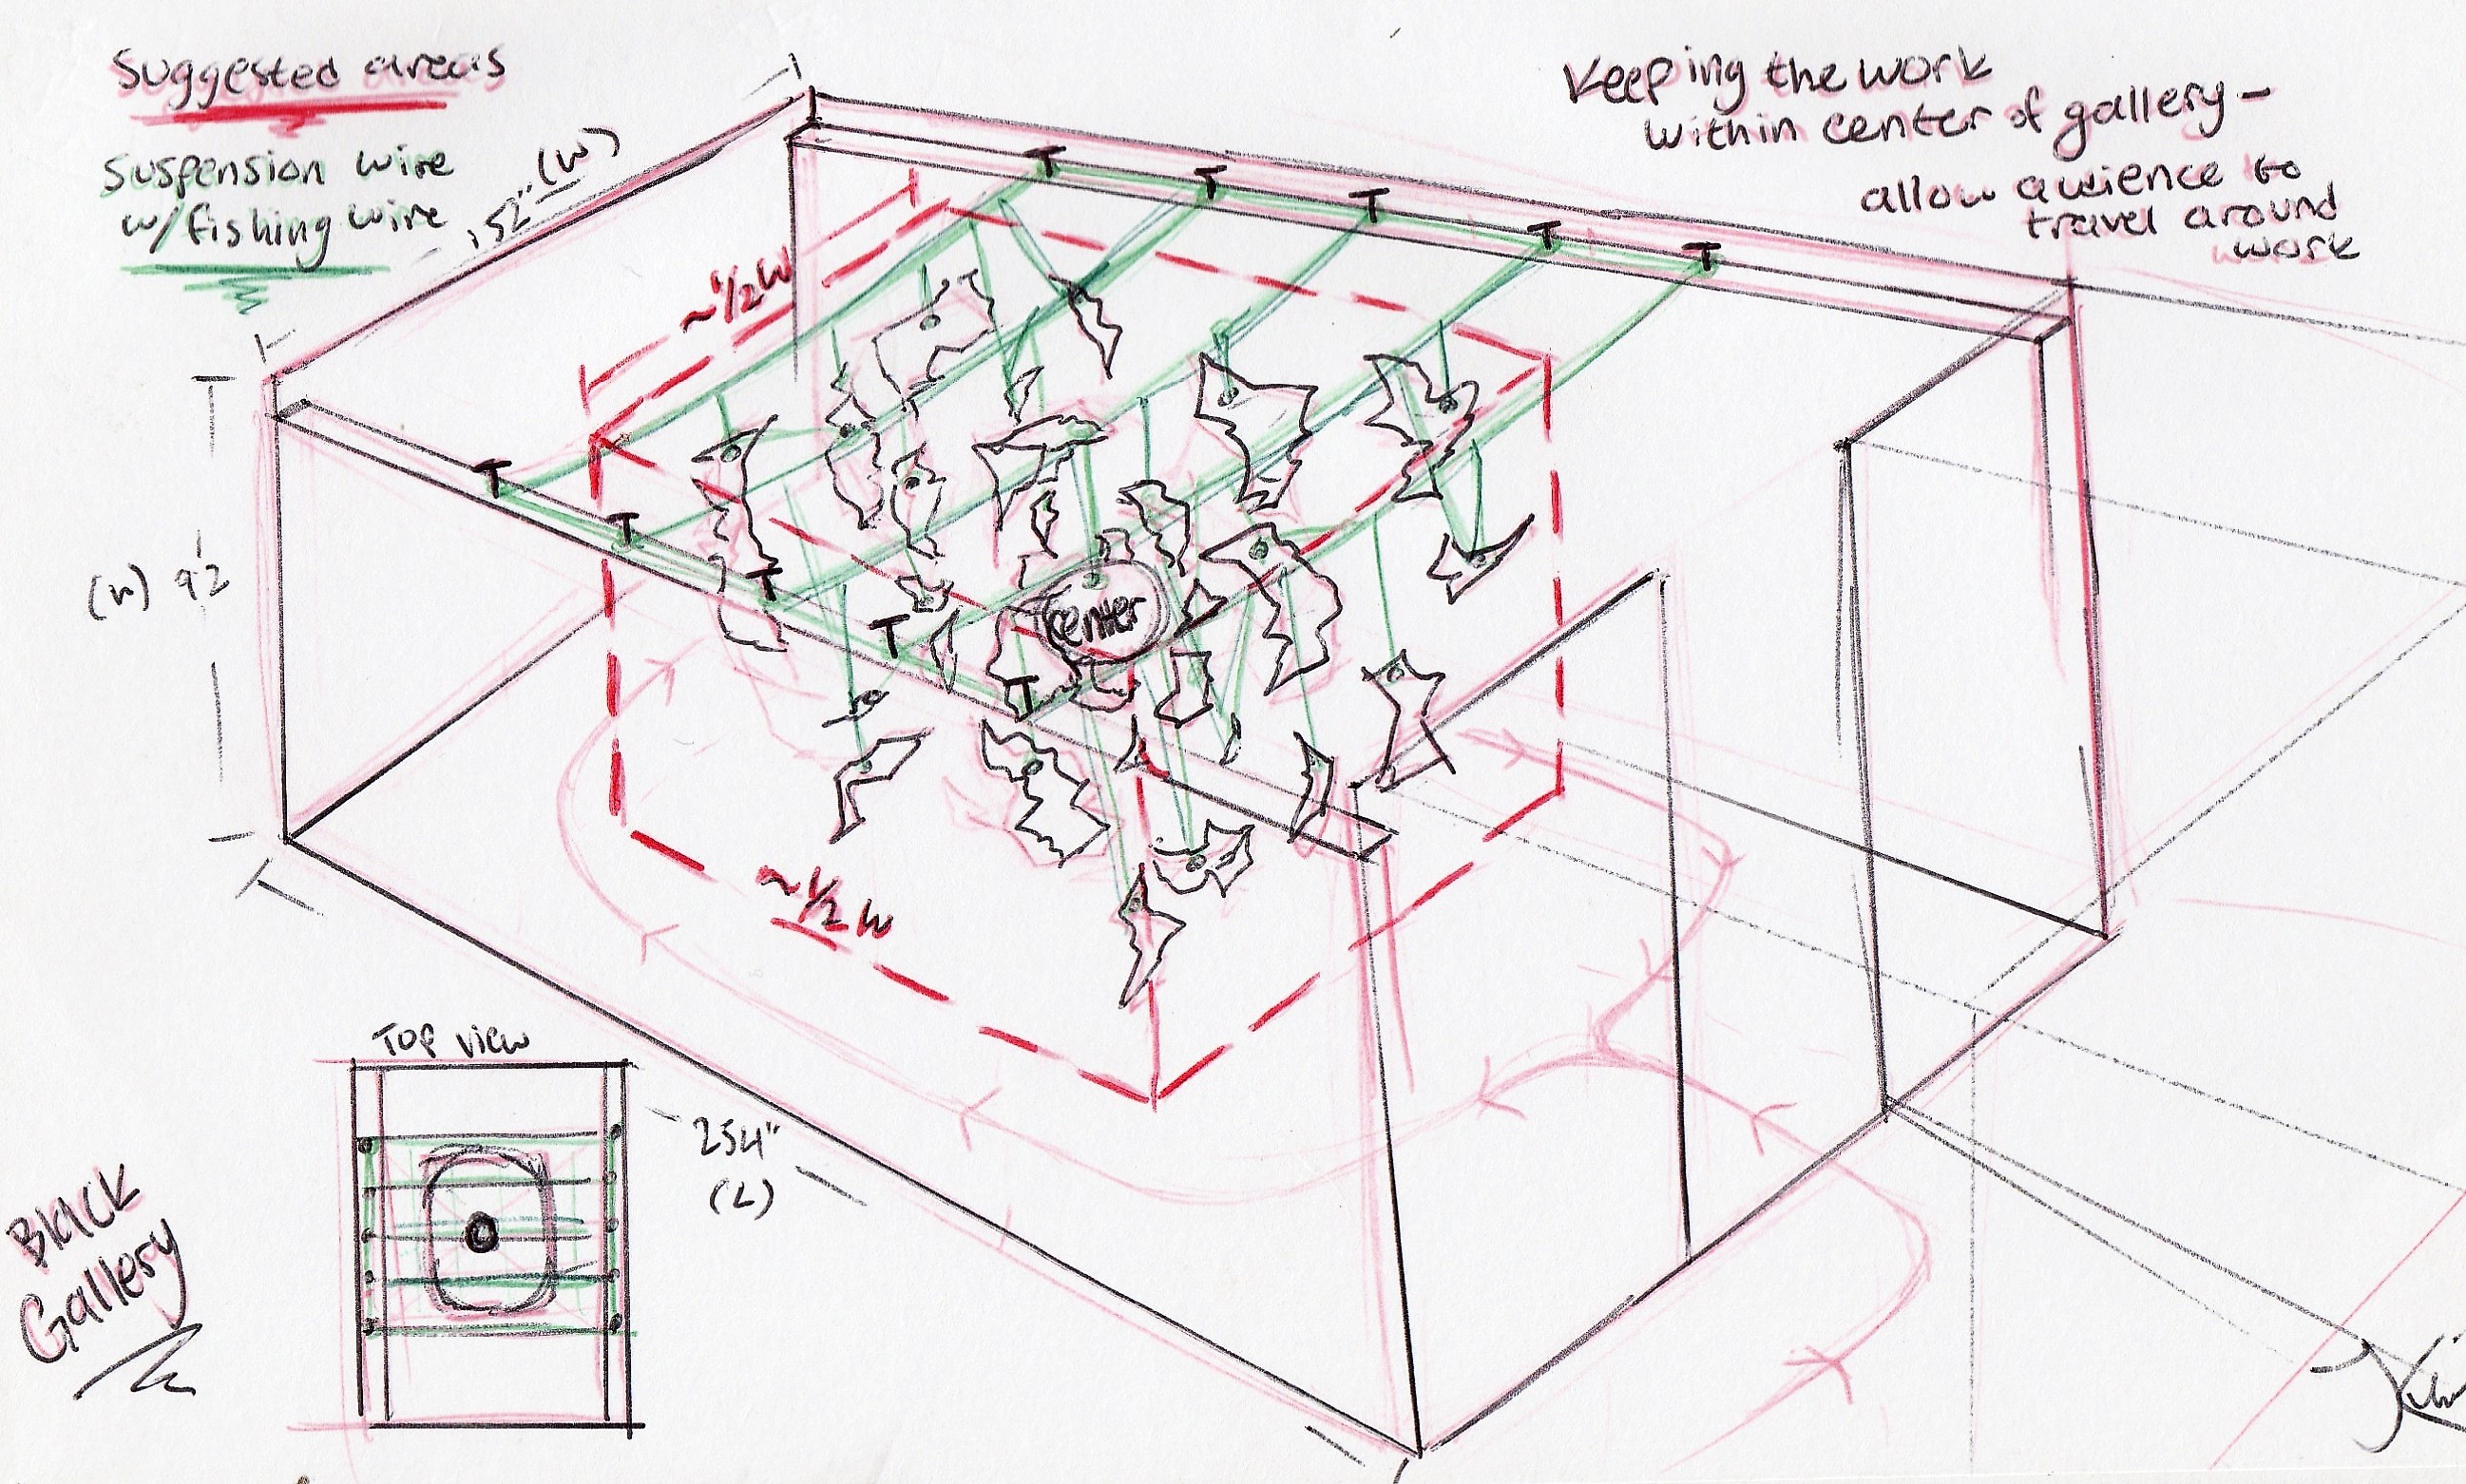 Suggested areas
Suspension wire
w/fishing wire
Keeping the work
within center of gallery -
allow audience to
travel around
work
152" (W)
~1/2 W
T T T T T
(H) 92
T T T T T
center
~1/2 W
Top view
254"
(L)
Black
Gallery